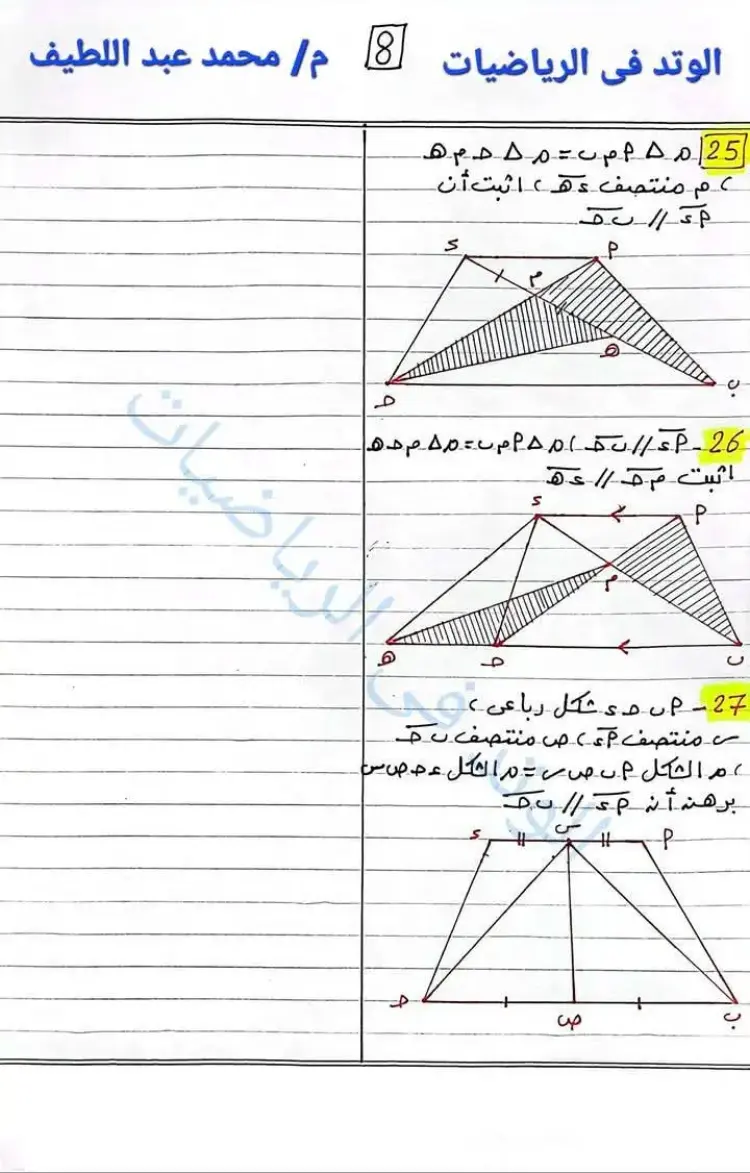 الوتد فى الرياضيات 8 م/ محمد عبد اللطيف
25 م △ م ب = م △ ح م هـ
، م منتصف ء هـ ، اثبت أن
أ ء // ب ح
ء أ
م
هـ
ح ب
26 - أ ء // ب ح ، م △ أ م ب = م △ م ح هـ
اثبت م ح // ء هـ
ء أ
م
هـ ح ب
27 - أ ب ح ء شكل رباعى ،
س منتصف أ ء ، ص منتصف ب ح
، م الشكل أ ب ص س = م الشكل ء ح ص س
برهنه أنه أ ء // ب ح
ء س أ
ح ص ب
الوتد فى الرياضيات